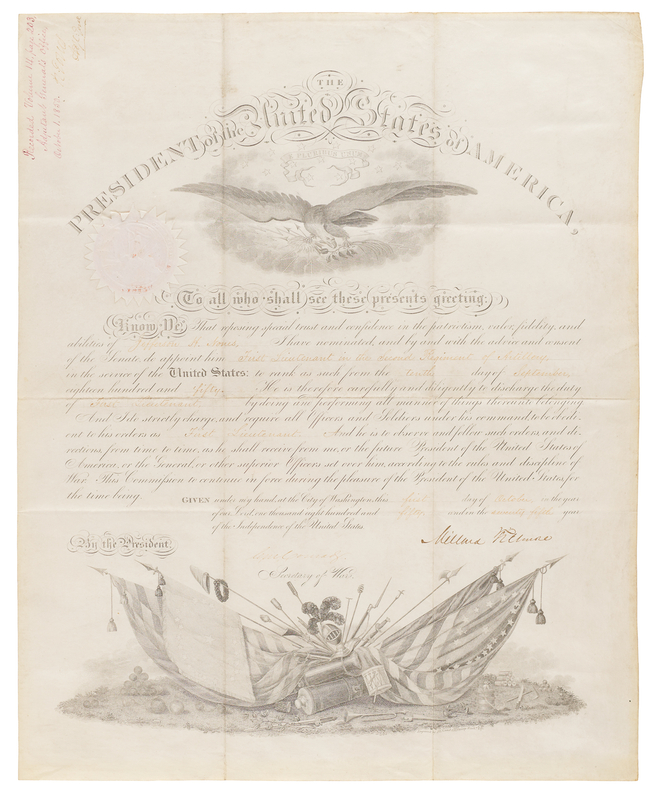 Recorded Volume 14, page 203
Adjutant General's Office
October 1850.
THE
PRESIDENT of the United States of AMERICA,
To all who shall see these presents greeting:
Know Ye: That reposing special trust and confidence in the patriotism, valor, fidelity, and
abilities of I have nominated, and by and with the advice and consent
of the Senate do appoint him First Lieutenant in the Second Regiment of Artillery
in the service of the United States: to rank as such from the tenth day of September
eighteen hundred and fifty. He is therefore carefully and diligently to discharge the duty
of First Lieutenant by doing and performing all manner of things thereunto belonging.
And I do strictly charge, and require all Officers and Soldiers under his command to be obedi-
ent to his orders as First Lieutenant. And he is to observe and follow such orders, and di-
rections from time to time, as he shall receive from me, or the future President of the United States of
America, or the General, or other superior Officers set over him, according to the rules and discipline of
War. This Commission to continue in force during the pleasure of the President of the United States, for
the time being.
GIVEN under my hand, at the City of Washington, this first day of October in the year
of our Lord, one thousand eight hundred and fifty and in the seventy fifth year
of the Independence of the United States.
By the President.
Millard Fillmore
Secretary of War.